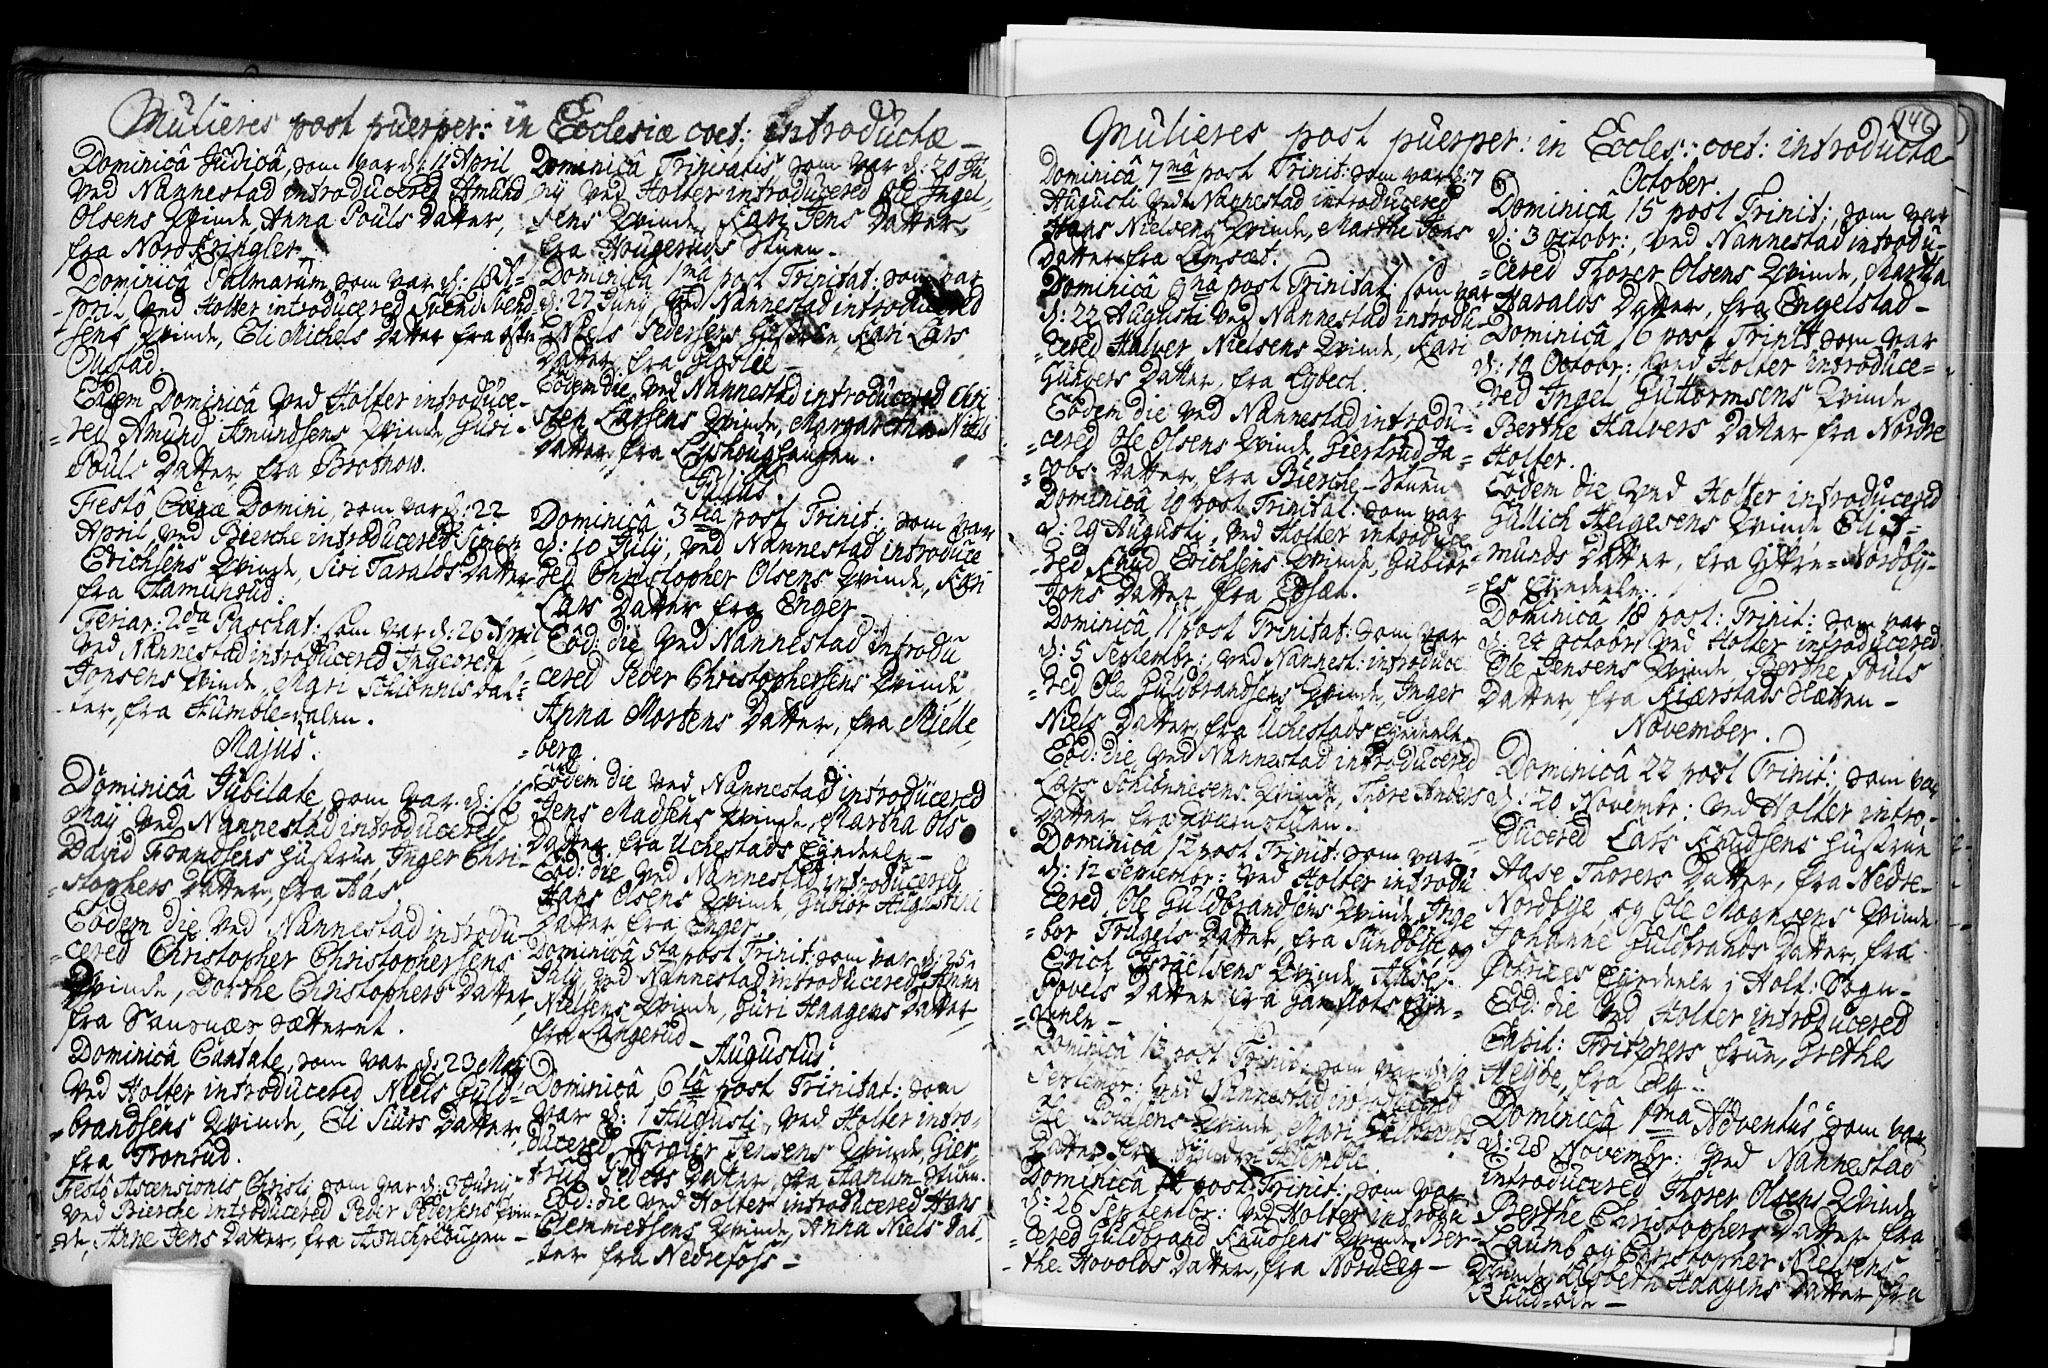 Mulieres post puerper: in Ecclesiæ coet: introductæ
Dominicâ Judicâ, som var d: 11 April
ved Nannestad introducered Amund
Olsens Qvinde, Anna Pouls Datter,
fra Nord Kringler.
Dominicâ Palmarum, som var d: 18 A-
pril, ved Holter introducered Svend Svend
sens Qvinde, Eli Michels Datter fra
Oustad.
Eadem Dominicâ ved Holter introduce-
red Amund Amundsens Qvinde, Guri
Pouls Datter, fra
Festô Cœnæ Domini, som var d: 22
April, ved Bierche introducered Simen
Erichsens Qvinde, Siri Taralds Datter
fra Aamunsud.
Feriar: 2da Paschat: som var d: 26 April
ved Nannestad introducered Ingebreth
Jonsens Qvinde, Mari Schiønnis dat-
ter, fra Humble-dalen.
Majus.
Dominicâ Jubilate, som var d: 16
Maij, ved Nannestad introducered
David Frandsens Hustrue, Inger Chri-
stophers Datter, fra Aas
Eodem die ved Nannestad introdu-
cered Christopher Christophersens
Qvinde, Dorthe Christophers Datter,
fra Sansnæs sætteret.
Dominicâ Cantate, som var d: 23 Maj
ved Holter introducered Niels Guld-
brandsens Qvinde, Eli Siurs Datter,
fra Tronsud.
Festô Ascensionis Christi som var d: 3 Junij
ved Bierche introducered Peder Pedersens Qvin-
de, Anne Jens Datter, fra
Dominicâ Trinitatis som var d: 20 Ju
nij ved Holter introducered Ole Ingel-
sens Qvinde, Kari Jens Datter,
fra Hougeruds Stuen.
Dominicâ 1ma post Trinitat: som var
d: 27 Junij ved Nannestad introducered
Niels Pedersens Hustrue, Kari Lars
Datter, fra
Eodem die, ved Nannestad introducered Chri
sten Larsens Qvinde, Margaretha Niels
Datter fra
Julius.
Dominicâ 3tia post Trinit:, som var
d: 10 Julij, ved Nannestad introduce
red Christopher Olsens Qvinde, Kari
Lars Datter fra Enger
Eod: die ved Nannestad introdu
cered Peder Christophersens Qvinde
Anna Mortens Datter, fra Mielle-
berg
Eodem die ved Nannestad introducered
Jens Madsens Qvinde, Martha Ols
Datter, fra Uchestads Eyedeele
Eod: die ved Nannestad introducered
Hans Olsens Qvinde, Gubiør Augustini
Datter fra Enger.
Dominicâ 5ta post Trinit: som var d: 25
July, ved Nannestad introducered
Nielsens Qvinde, Guri Haagens Datter,
fra Langerud
Augustus.
Dominicâ 6tâ post Trinitat: som
var d: 1 Augusti, ved Holter intro-
ducered Torgier Jensens Qvinde, Gier
trud Peders Datter, fra Hanum-Stuen.
Eod: die ved Holter introducered Hans
Clemmetsens Qvinde, Anna Niels Dat-
ter fra Nedrefoss
146
Mulieres post puerper: in Eccles: coet: introductæ
Dominicâ 7mâ post Trinit: som var d: 7
Augusti ved Nannestad introducered
Hans Nielsens Qvinde, Marthe Jens
Datter fra
Dominicâ 9na post Trinitat: som var
d: 22 Augusti ved Nannestad introdu-
cered Halver Nielsens Qvinde, Kari
Gunners Datter, fra Lybech.
Eodem die ved Nannestad introdu-
cered Ole Olsens Qvinde, Giertrud Ja-
cobs Datter, fra Bierche-Stuen
Dominicâ 10 post Trinitat: som var
d: 29 Augusti, ved Holter introduce
red Knud Erichsens Qvinde, Gubiør
Jons Datter, fra
Dominicâ 11 post Trinitat: som var
d: 5 Septembr:, ved Nannest: introduce
red Ole Guldbrandsens Qvinde, Inger
Niels Datter, fra Uchestads Eyedeele.
Eod: die, ved Nannestad introducered
Lars Schiønnesens Qvinde, Thore Anders
Datter fra Qvernstuen.
Dominicâ 12 post Trinit: som var
d: 12 Septembr: ved Holter introdu
cered, Ole Guldbrandsens Qvinde, Inge
bor Trugels Datter, fra Sundbye, og
Erich Israelsens Qvinde, Aase
Povels Datter fra
deele
Dominicâ 13 post Trinit: som var d: 19
Septembr: ved Nannestad introducered
Ole Poulsens Qvinde, Mari
Datter, fra
Dominicâ 14 post Trinit: som var
d: 26 Septembr: ved Holter introdu
cered Guldbrand Knudsens Qvinde, Ber-
the Hovolds Datter, fra Nord Eeg
October
Dominicâ 15 post Trinit:, som var
d: 3 octobr:, ved Nannestad introdu-
cered Thorer Olsens Qvinde, Martha
Haralds Datter, fra Engelstad
Dominicâ 16 post Trinit som var
d: 10 Octobr:, ved Holter introduce-
red Ingel Guttormsens Qvinde
Berthe Halvers Datter fra Nordre
Holter.
Eodem die ved Holter introducered
Gullich Helgesens Qvinde Eli A-
munds Datter, fra Nordby-
es Eyedeele.
Dominicâ 18 post: Trinit: som var
d: 24 octobr: ved Holter introducered
Ole Jensens Qvinde, Berthe Pouls
Datter, fra Kiærstads Hætten
November.
Dominicâ 22 post Trinit: som var
d: 20 Novembr: ved Holter intro-
ducered Lars Knudsens Hustrue
Aase Thorers Datter, fra Nedre-
Nordbye og Ole Mognsens Qvinde
Johanne Guldbrands Datter, fra
Eyedeele i Holt: Sogn
Eod: die ved Holter introducered
Capit: Fritzners Frue, Grethe
Heyde, fra Eeg.
Dominicâ 1ma Adventus som var
d: 28 Novembr: ved Nannestad
introducered Thorer Olsens Qvinde
Berthe Christophers Datter fra
Laumb og Christopher Nielsens
Qvinde Elsbeth Haagens Datter fra
Ruud-øie